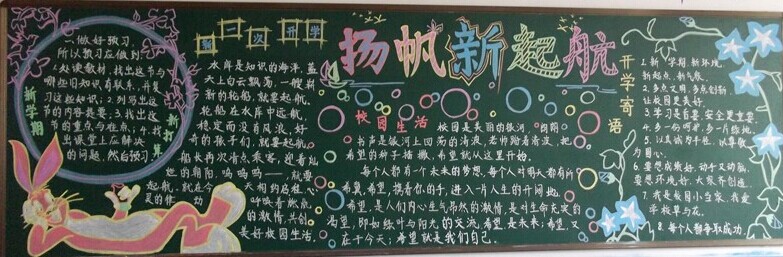 扬帆新起航
新学期
新打算
一、做好预习
所以预习应做到
1.处读教材,找出这节与
哪些旧知识有联系,并复
习这些知识;2.列写出这
节的内容提要;3.找出这节
的重点与难点;4.找
出课堂上应解决
的问题,然后预习
新一次开学
水库是知识的海洋,蓝
天上白云飘荡,一艘崭
新的轮船,就要起航,
轮船在水库中远航,
稳定而没有风浪,好
奇的孩子们,就要起航,
船长再次清点乘客,迎着灿
烂的朝阳,呜呜呜——,就要
起航,就在今天相约启程
夏的律动
呼唤着燃点
的激情,共创
是好校园生活。
校园生活
校园是美丽的银河,朗朗
书声是银河上回荡的清流,老师踏着希波,把
希望的种子播撒,希望就从这里开始。
每个人都有一个未来的梦想,每个人对明天都有所
希冀,希望,携着你的手,进入一片人生的开阔地。
希望,是人们内心生气昂然的激情,是对生命充实的
渴望,即如绿叶与阳光的交流,希望是未来;希望,又
在于今天;希望就是我们自己。
开学寄语
1.新学期,新环境,
新起点,新气象。
2.多点文明,多点创新,
让校园更美好。
3.学习是首要,安全更重要
4.多一份呵护,多一片绿地。
5.以真诚为半径,以尊重
为圆心。
6.要想成绩好,动手又动脑,
要想环境好,大家齐创造。
7.我是校园小当家,我爱
学校草与花。
8.每个人都争取成功。